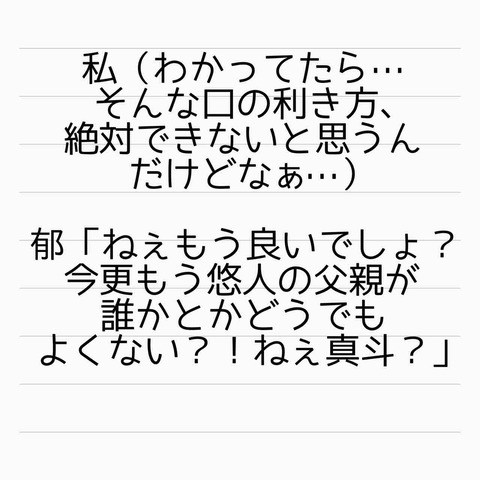 私（わかってたら…
そんな口の利き方、
絶対できないと思うん
だけどなぁ…）
郁「ねぇもう良いでしょ？
今更もう悠人の父親が
誰かとかどうでも
よくない？！ねぇ真斗？」